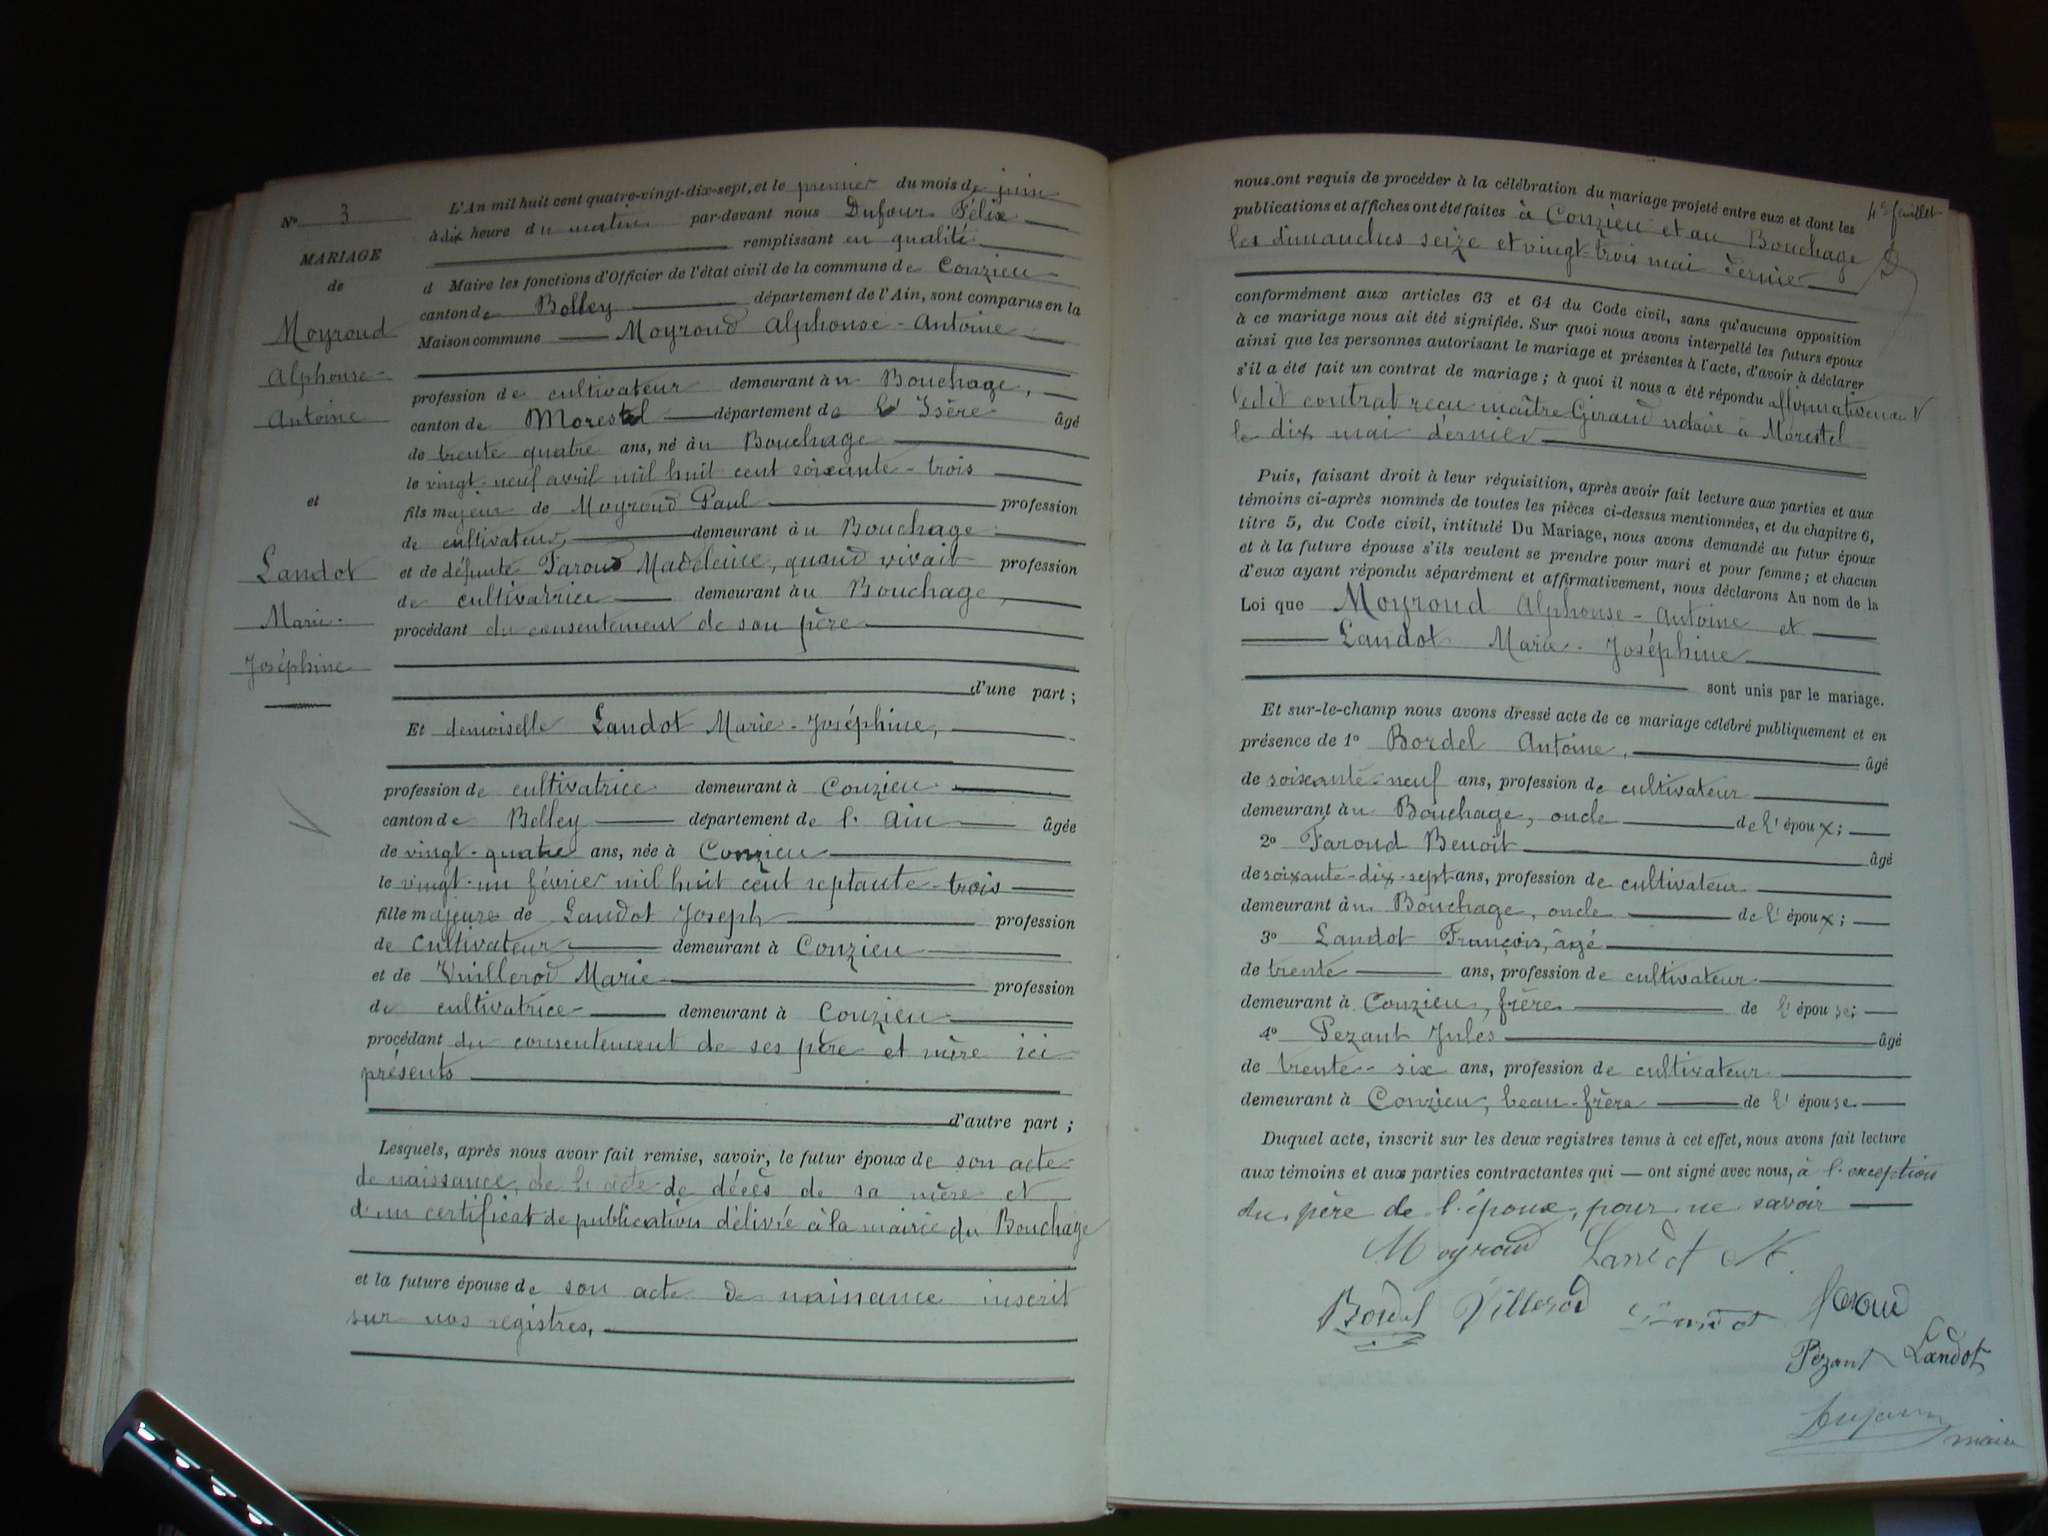 N° 3
MARIAGE
de
Moyroud
Alphonse-
Antoine
et
Landot
Marie-
Joséphine
L'An mil huit cent quatre-vingt-dix-sept, et le premier du mois de juin
à dix heure du matin par-devant nous Dufour Félix
remplissant en qualité
d Maire les fonctions d'Officier de l'état civil de la commune de Conzieu
canton de Belley département de l'Ain, sont comparus en la
Maison commune Moyroud Alphonse-Antoine
profession de cultivateur demeurant à u Bouchage,
canton de Morestel département de l'Isère âgé
de trente quatre ans, né à u Bouchage
le vingt-neuf avril mil huit cent soixante-trois
fils majeur de Moyroud Paul profession
de cultivateur, demeurant à u Bouchage
et de défunte Faroud Madeleine, quand vivait profession
de cultivatrice demeurant à u Bouchage,
procédant du consentement de son père
d'une part ;
Et demoiselle Landot Marie-Joséphine,
profession de cultivatrice demeurant à Conzieu
canton de Belley département de l'Ain âgée
de vingt-quatre ans, née à Conzieu
le vingt-un février mil huit cent septante-trois
fille majeure de Landot Joseph profession
de cultivateur demeurant à Conzieu
et de Vuillerod Marie profession
de cultivatrice demeurant à Conzieu
procédant du consentement de ses père et mère ici
présents
d'autre part ;
Lesquels, après nous avoir fait remise, savoir, le futur époux de son acte
de naissance, de l'acte de décès de sa mère et
d'un certificat de publication délivré à la mairie du Bouchage
et la future épouse de son acte de naissance inscrit
sur nos registres,
4e feuillet
nous ont requis de procéder à la célébration du mariage projeté entre eux et dont les
publications et affiches ont été faites à Conzieu et au Bouchage
les dimanches seize et vingt-trois mai dernier
conformément aux articles 63 et 64 du Code civil, sans qu'aucune opposition
à ce mariage nous ait été signifiée. Sur quoi nous avons interpellé les futurs époux
ainsi que les personnes autorisant le mariage et présentes à l'acte, d'avoir à déclarer
s'il a été fait un contrat de mariage ; à quoi il nous a été répondu affirmativement
ledit contrat reçu maître Giraud notaire à Morestel
le dix mai dernier
Puis, faisant droit à leur réquisition, après avoir fait lecture aux parties et aux
témoins ci-après nommés de toutes les pièces ci-dessus mentionnées, et du chapitre 6,
titre 5, du Code civil, intitulé Du Mariage, nous avons demandé au futur époux
et à la future épouse s'ils veulent se prendre pour mari et pour femme ; et chacun
d'eux ayant répondu séparément et affirmativement, nous déclarons Au nom de la
Loi que Moyroud Alphonse-Antoine et
Landot Marie-Joséphine
sont unis par le mariage.
Et sur-le-champ nous avons dressé acte de ce mariage célébré publiquement et en
présence de 1° Bordel Antoine, âgé
de soixante-neuf ans, profession de cultivateur
demeurant à u Bouchage, oncle de l'époux ;
2° Faroud Benoit âgé
de soixante-dix-sept ans, profession de cultivateur
demeurant à u Bouchage, oncle de l'époux ;
3° Landot François, âgé
de trente ans, profession de cultivateur
demeurant à Conzieu, frère de l'épouse ;
4° Pezant Jules âgé
de trente-six ans, profession de cultivateur
demeurant à Conzieu, beau-frère de l'épouse.
Duquel acte, inscrit sur les deux registres tenus à cet effet, nous avons fait lecture
aux témoins et aux parties contractantes qui — ont signé avec nous, à l'exception
du père de l'époux, pour ne savoir
Moyroud Landot M.
Bordel Villerod Landot faroud
Pezant Landot
Dufour
maire